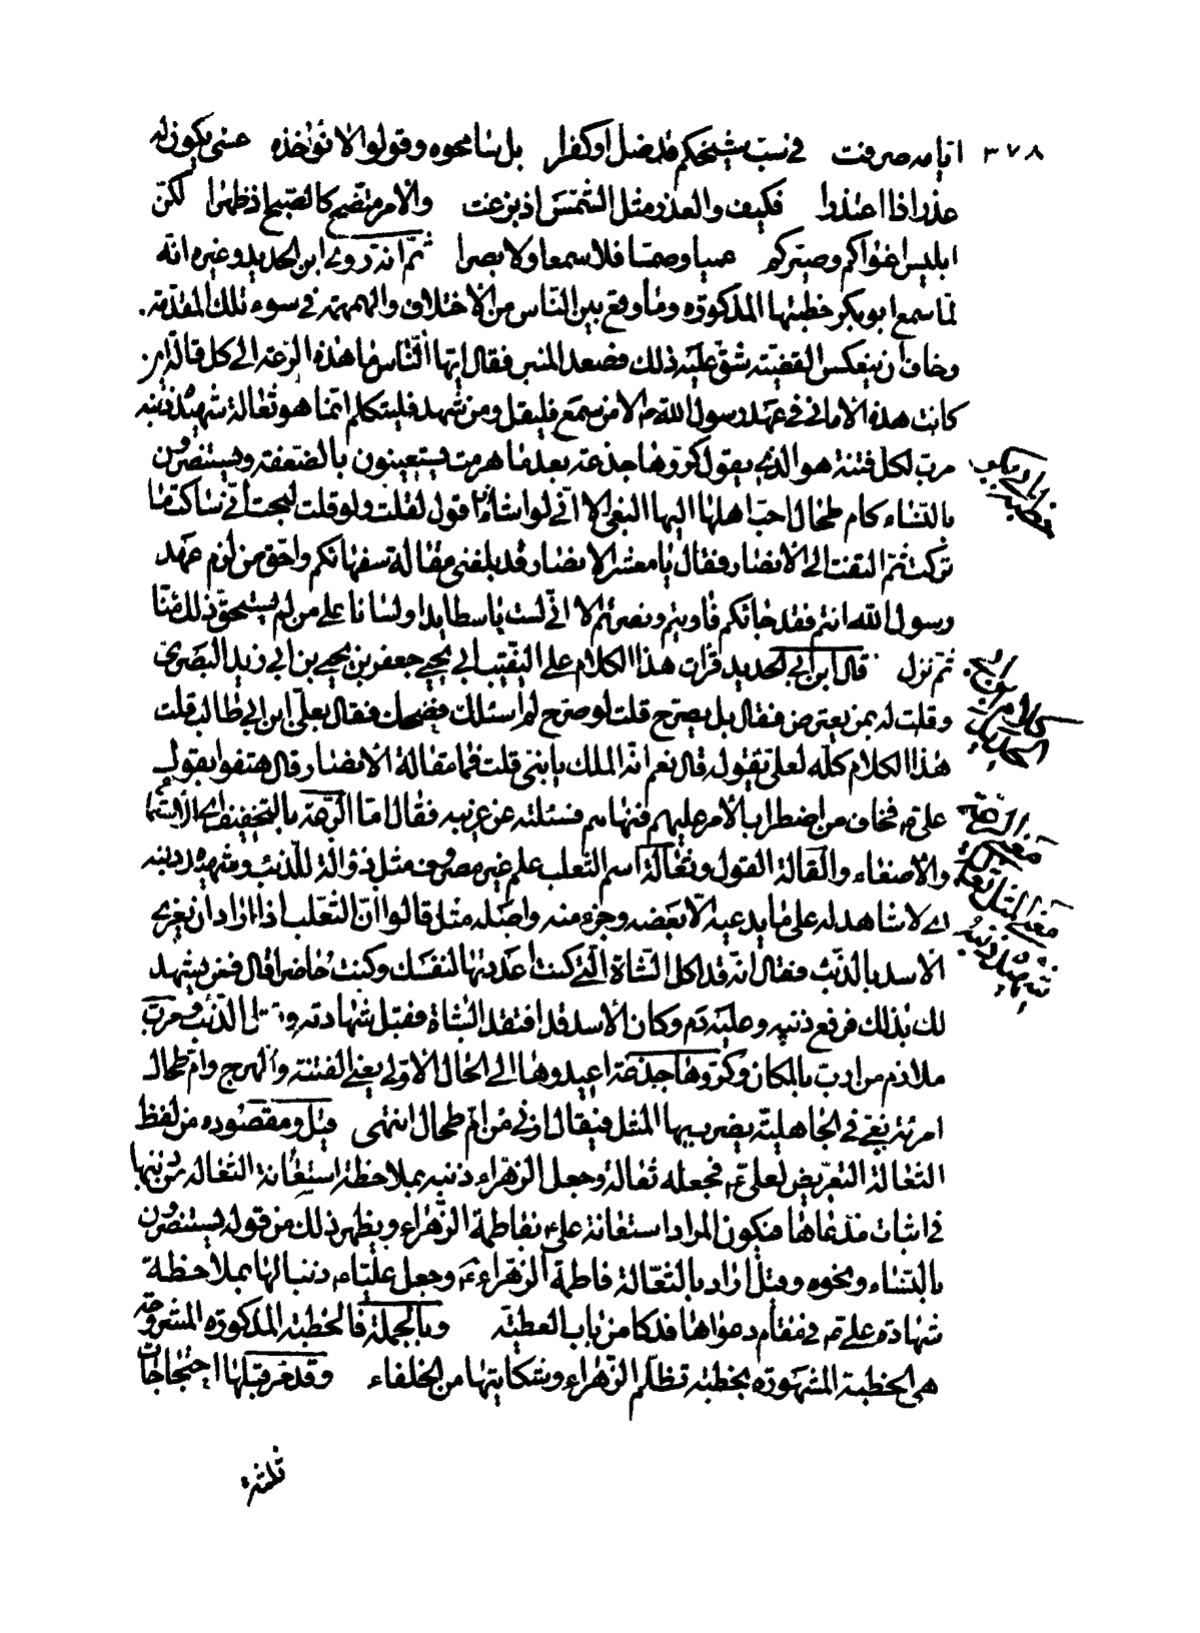 ٣٧٨ ايامه صرفت في سب شيخكم قد ضل او كفرا بل سامحوه وقولوا لا نؤاخذه عسى يكون له
عذر اذا اعتذرا فكيف والعذر مثل الشمس اذ بزغت والامر متضح كالصبح اذ ظهرا لكن
ابليس اغواكم وصيركم عميا وصما فلا سمعا ولا بصرا ثم انه روى ابن الحديد وغيره انه
لما سمع ابو بكر خطبتها المذكورة وما وقع بين الناس من الاختلاف والهمهمة في سوء تلك المقدمة.
وخاف ان ينعكس القضية شق عليه ذلك فصعد المنبر فقال ايها الناس ما هذه الرعة الى كل قالة اين
كانت هذه الاماني في عهد رسول الله ص الا من سمع فليقل ومن شهد فليتكلم انما هو ثعالة شهيده ذنبه
مرب لكل فتنة هو الذي يقول كروها جذعة بعد ما هرمت يستعينون بالضعفة ويستنصرون
بالنساء كام طحال احب اهلها اليها البغي الا اني لو اشاء ان اقول لقلت ولو قلت لبحت اني ساكت ما
تركت ثم التفت الى الانصار فقال يا معشر الانصار قد بلغني مقالة سفهائكم واحق من لزم عهد
رسول الله انتم فقد جائكم فاويتم ونصرتم الا اني لست باسطا يدا ولسانا على من لم يستحق ذلك منا
ثم نزل قال ابن ابي الحديد قرات هذا الكلام على النقيب ابي يحيى جعفر بن يحيى بن ابي زيد البصري
وقلت له بمن يعترض فقال بل يصرح قلت لو صرح لم اسئلك فضحك فقال بعلي ابن ابي طالب قلت
هذا الكلام كله لعلي يقوله قال نعم انه الملك يا بني قلت فما مقالة الانصار قال هتفوا بقول
علي ع فخاف من اضطراب الامر عليهم فنهاهم فسئلته عن غريبه فقال اما الرعة بالتخفيف اي الاستماع
والاصغاء والقالة القول وثعالة اسم الثعلب علم غير مصروف مثل ذؤالة للذئب وشهيده ذنبه
اي لا شاهد له على ما يدعيه الا بعضه وجزء منه واصله مثل قالوا ان الثعلب اذا اراد ان يغري
الاسد بالذئب فقال انه قد اكل الشاة التي كنت اعددتها لنفسك وكنت حاضرا قال فمن يشهد
لك بذلك فرفع ذنبه وعليه دم وكان الاسد قد افتقد الشاة فقبل شهادته وقتل الذئب ومرب
ملازم من ارب بالمكان وكروها جذعة اعيدوها الى الحال الاولى يعني الفتنة والهرج وام طحال
امرئة بغي في الجاهلية يضرب بها المثل فيقال ازنى من ام طحال انتهى قيل ومقصوده من لفظ
الثعالة التعريض لعلي ع فجعله ثعالة وجعل الزهراء ذنبه بملاحظة استعانة الثعالة من ذنبها
في اثبات مدعاها فيكون المراد استعانة علي ع بفاطمة الزهراء ويظهر ذلك من قوله يستنصرون
بالنساء ونحوه وقيل اراد بالثعالة فاطمة الزهراء ع وجعل عليا ع ذنبا لها بملاحظة
شهادة علي ع في مقام دعواها فدكا من باب العطية وبالجملة فالخطبة المذكورة المشروحة
هي الخطبة المشهورة بخطبة تظلم الزهراء وشكايتها من الخلفاء وقد عرفت لها احتجاجات
خطبة ابي بكر
كلام ابن ابي الحديد
معنى الرعة
معنى المثل ثعالة
شهيده ذنبه